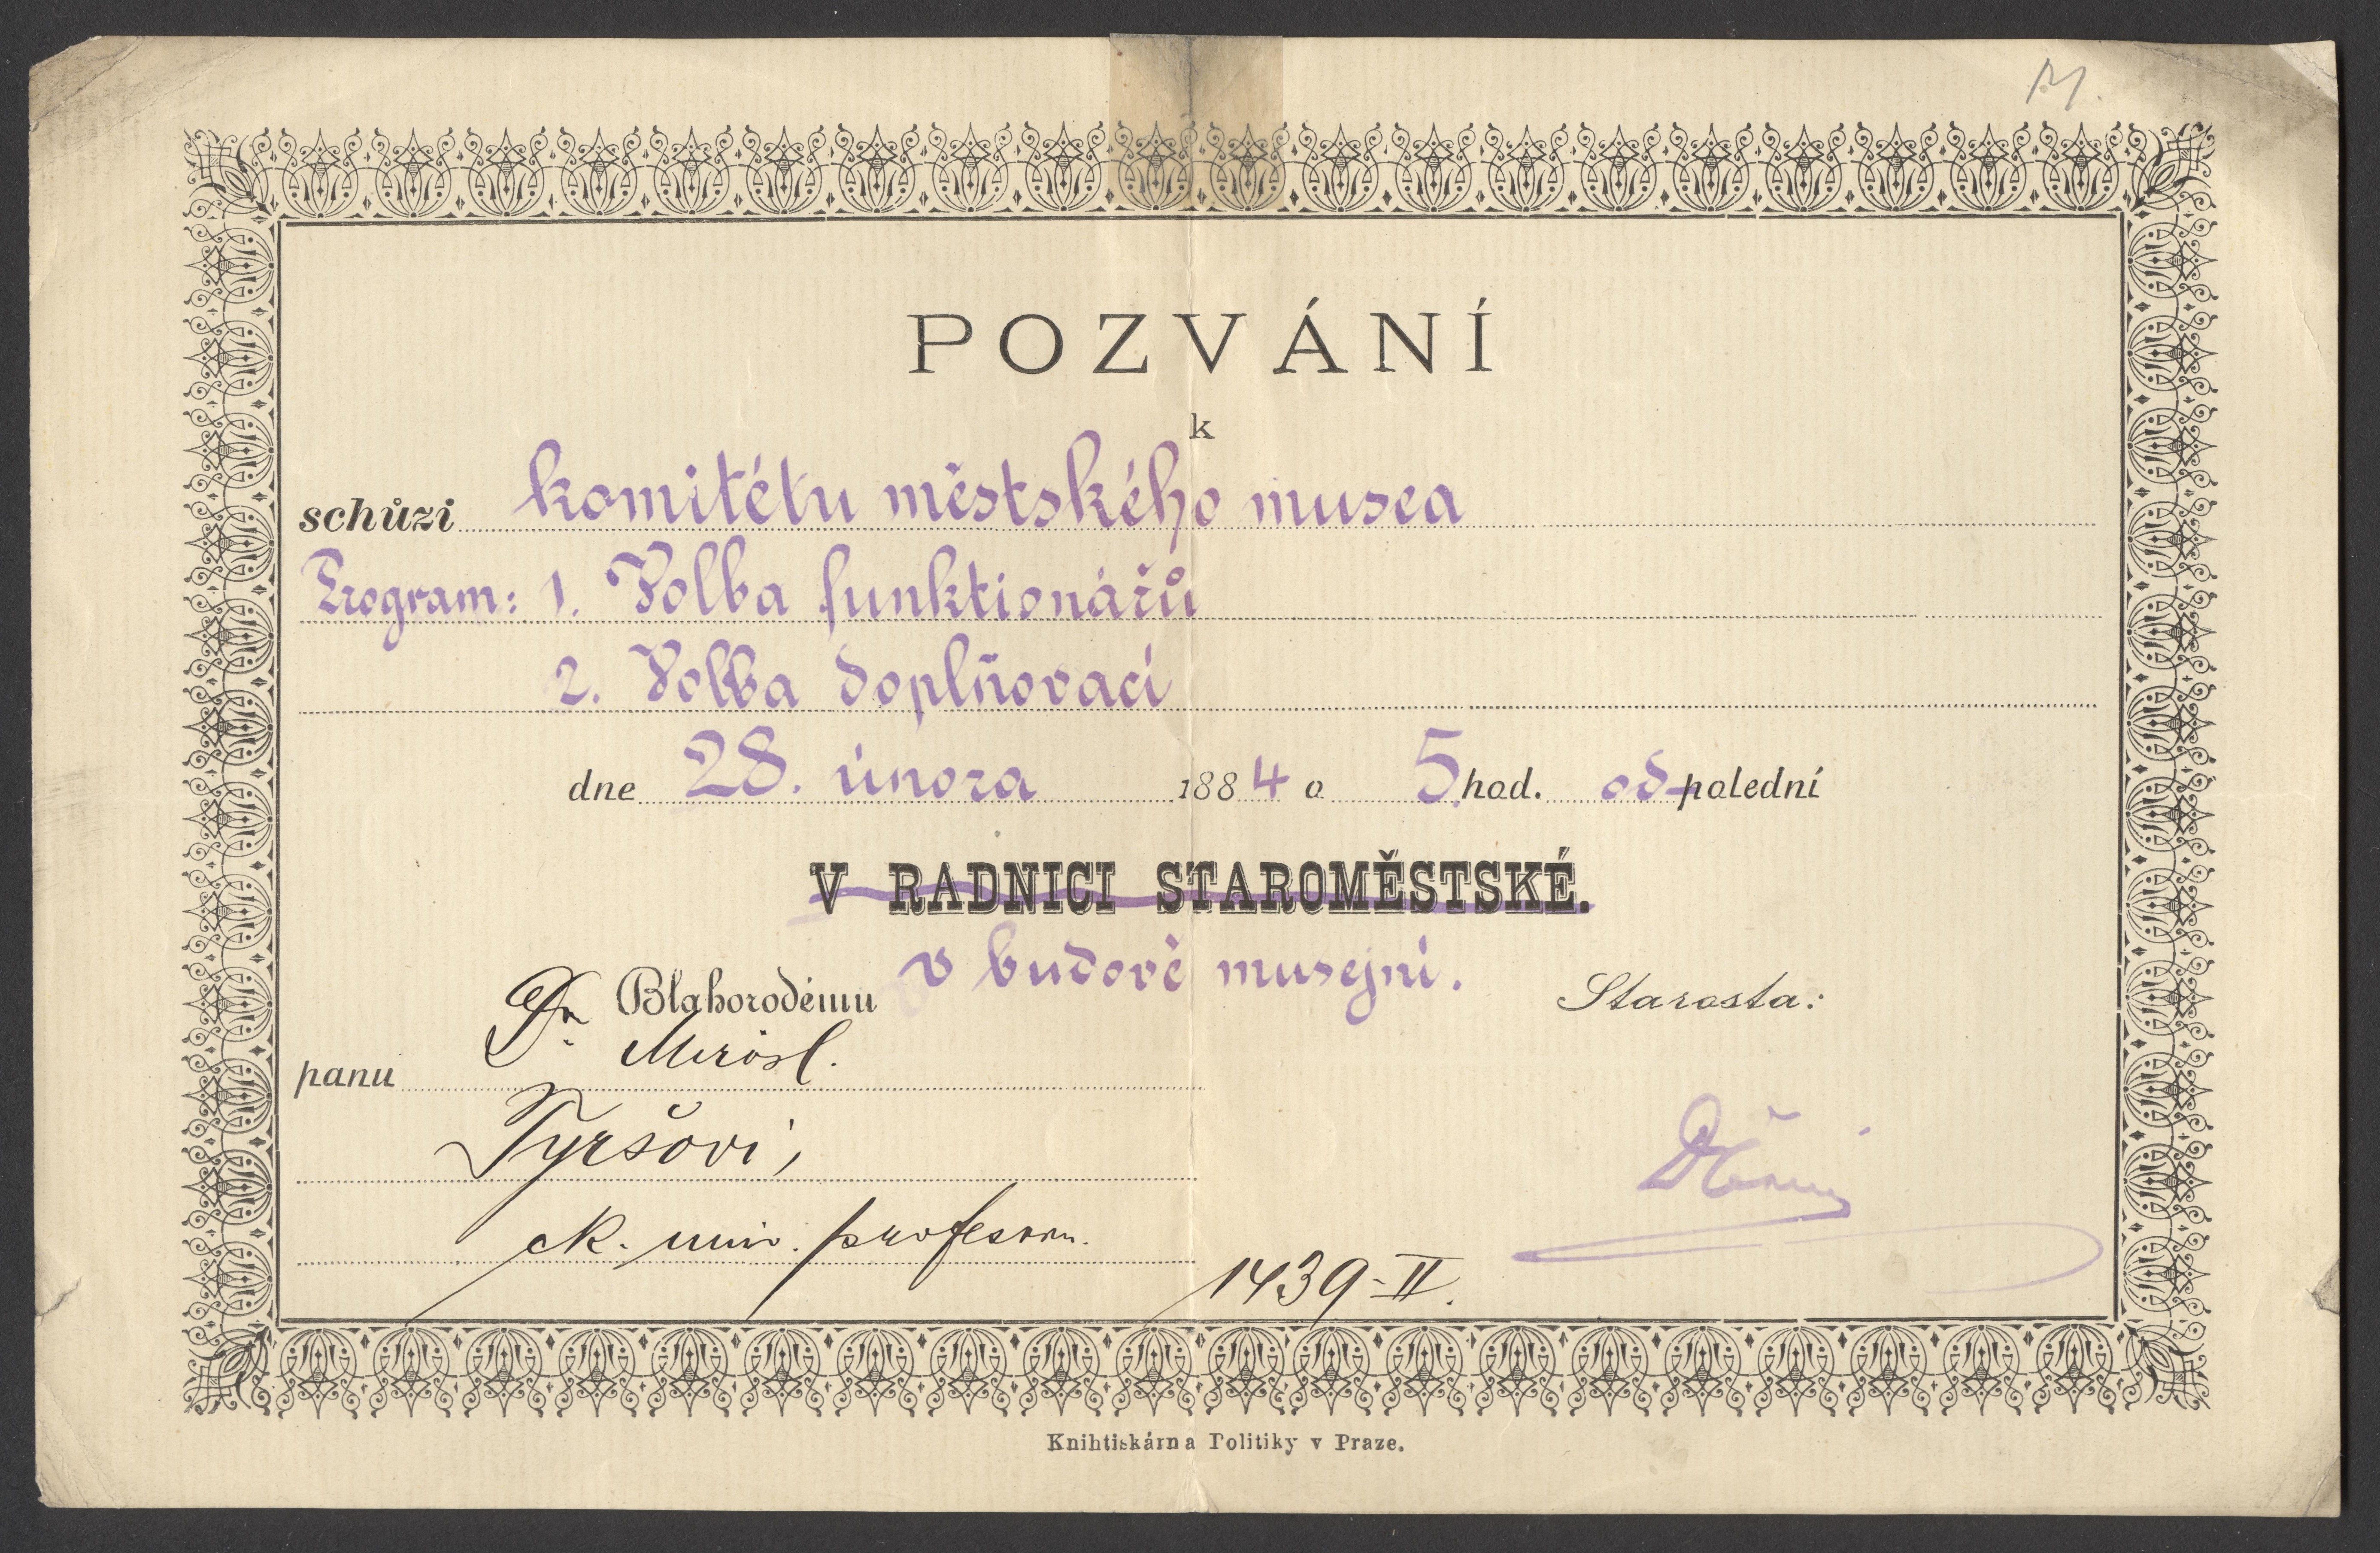 M.
POZVÁNÍ
k
schůzi komitétu městského musea
Program: 1. Volba funktionářů
2. Volba doplňovací
dne 28. února 1884 o 5 hod. odpolední
V RADNICI STAROMĚSTSKÉ.
v budově musejní.
Blahorodému
Starosta:
panu Dr. Mirosl.
Tyršovi,
ck. univ. profesoru.
1439-II.
Knihtiskárna Politiky v Praze.